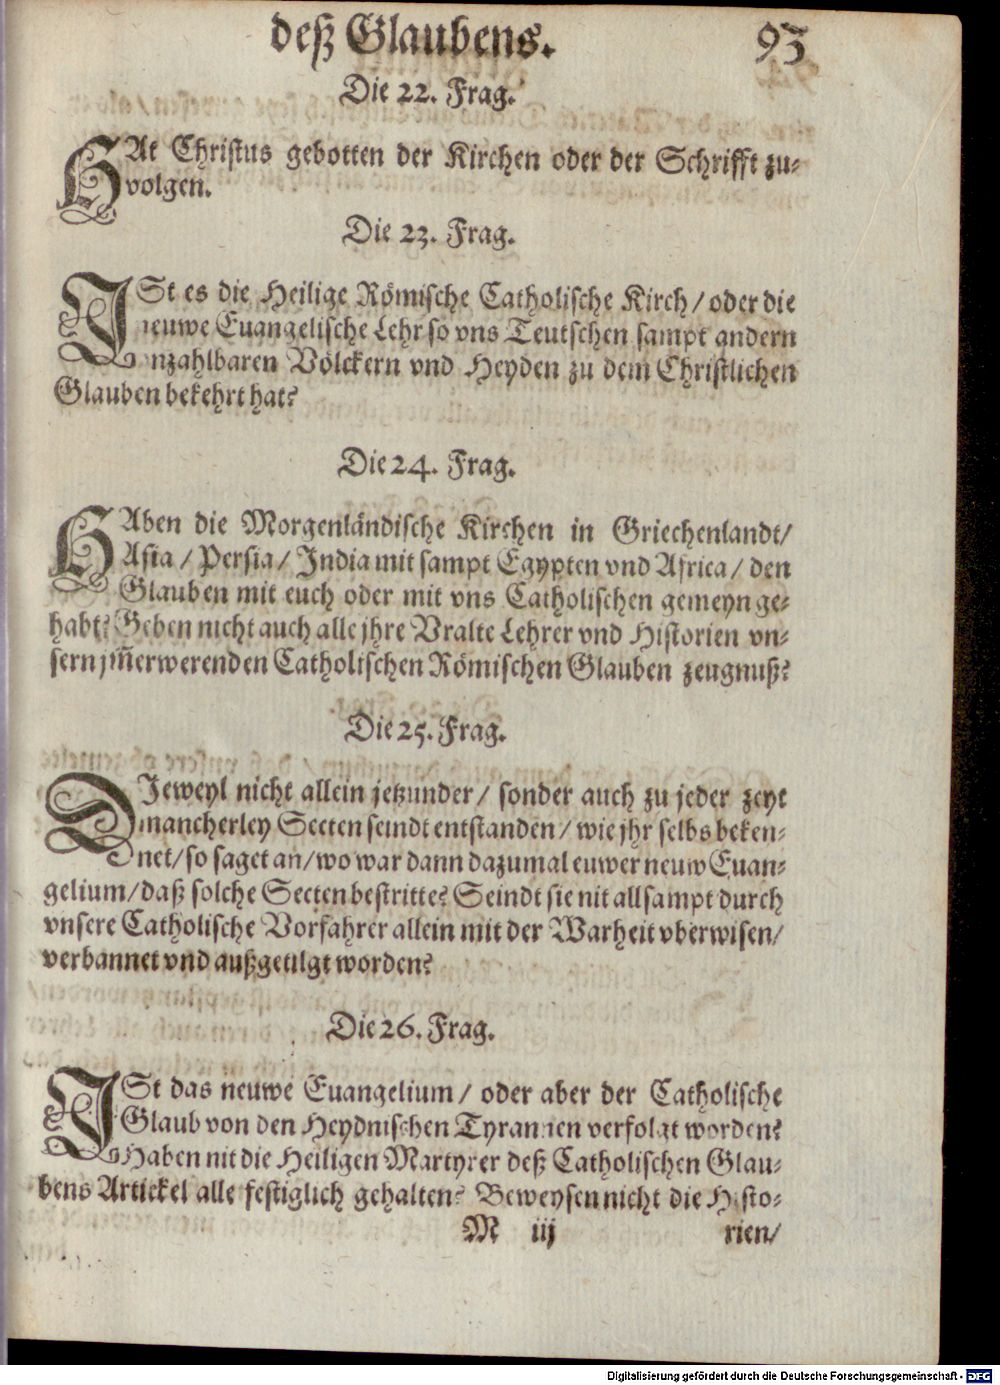 deß Glaubens. 93
Die 22. Frag.
HAt Christus gebotten der Kirchen oder der Schrifft zu-
volgen.
Die 23. Frag.
ISt es die Heilige Römische Catholische Kirch / oder die
neuwe Euangelische Lehr so vns Teutschen sampt andern
vnzahlbaren Völckern vnd Heyden zu dem Christlichen
Glauben bekehrt hat?
Die 24. Frag.
HAben die Morgenländische Kirchen in Griechenlandt/
Asia / Persia / India mit sampt Egypten vnd Africa / den
Glauben mit euch oder mit vns Catholischen gemeyn ge-
habt? Geben nicht auch alle jhre Vralte Lehrer vnd Historien vn-
sern jm̃erwerenden Catholischen Römischen Glauben zeugnuß?
Die 25. Frag.
DIeweyl nicht allein jetzunder / sonder auch zu jeder zeyt
mancherley Secten seindt entstanden / wie jhr selbs beken-
net / so saget an / wo war dann dazumal euwer neuw Euan-
gelium / daß solche Secten bestritte? Seindt sie nit allsampt durch
vnsere Catholische Vorfahrer allein mit der Warheit vberwisen/
verbannet vnd außgetilgt worden?
Die 26. Frag.
ISt das neuwe Euangelium / oder aber der Catholische
Glaub von den Heydnischen Tyrannen verfolgt worden?
Haben nit die Heiligen Martyrer deß Catholischen Glau-
bens Artickel alle festiglich gehalten? Beweysen nicht die Histo-
M iij rien/
Digitalisierung gefördert durch die Deutsche Forschungsgemeinschaft - DFG